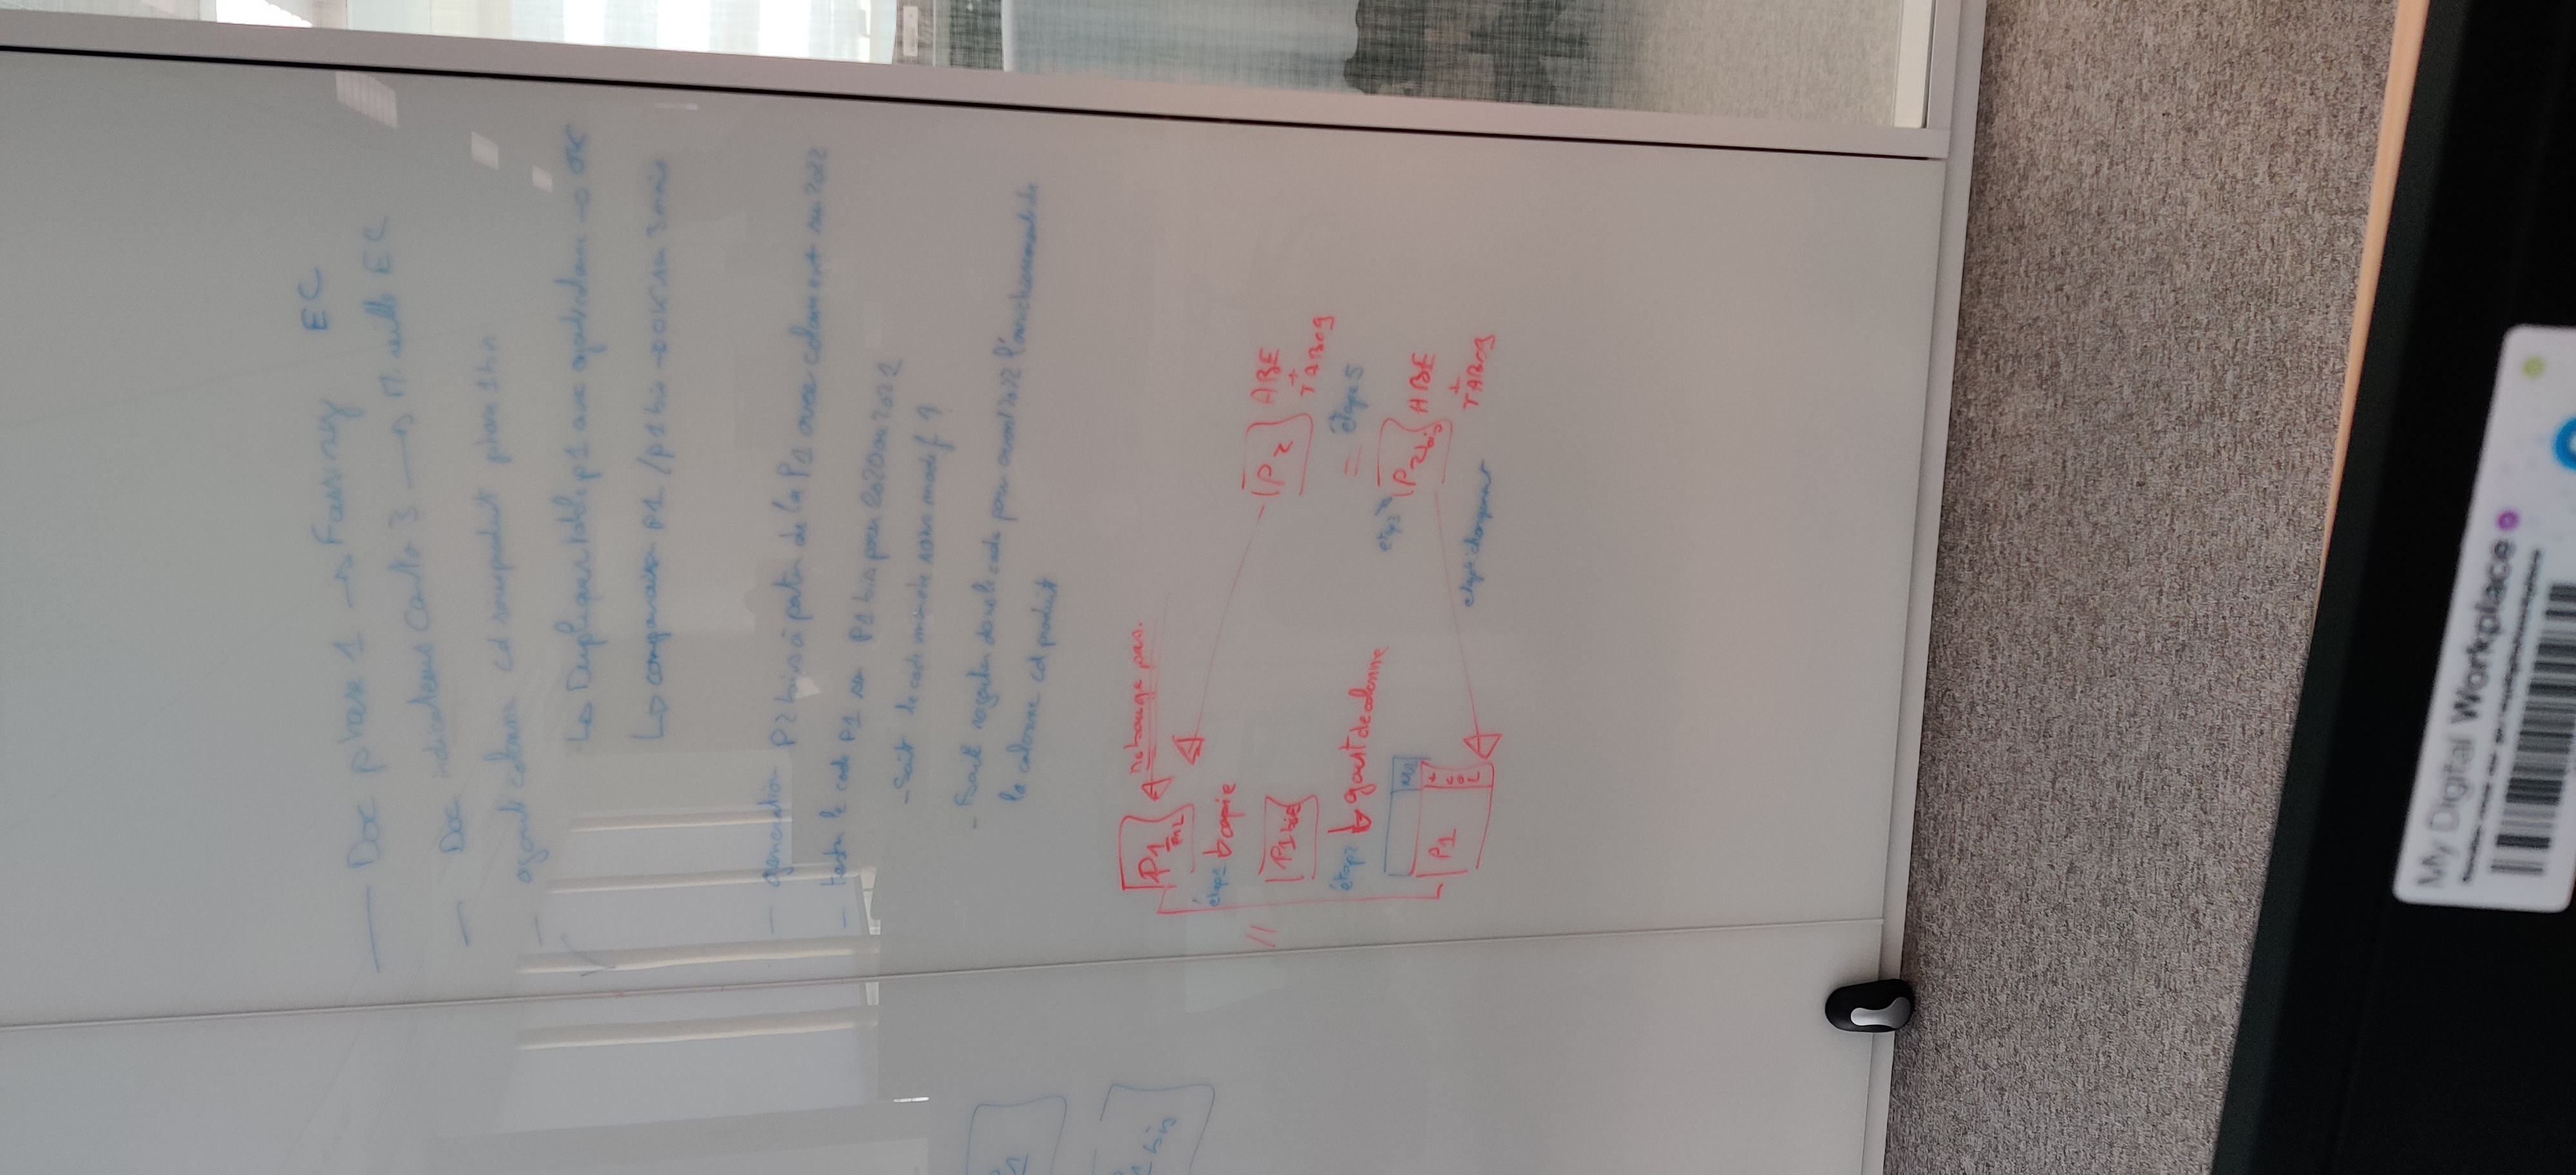 — Doc phase 1 → EC
— Doc indicateurs Carto 3 → EC
— ajout colonne cd sousproduit phase 1 bis
↳ Dupliquer table p1 avec ajout colonne → OK
↳ comparaison p1 / p1 bis → OK sur 3 mois
— generation P2 bis à partir de la P1 avec sur 2022
— tester le code P1 sur P1 bis pour 2020 ou 2021
- Soit le code marche sans modif ?
- Soit rajouter dans le code pour avant 2022 l'enrichissement de
la colonne cd produit
P1
bis
P1
ne bouge pas.
étape 1 copie
//
P1 bis
P2 ABE
+
TAB09
= étape 5
étape 2 ajout de colonne
étape 3 P2 bis ABE
+
TAB09
P1 + COL
changement
My Digital Workplace